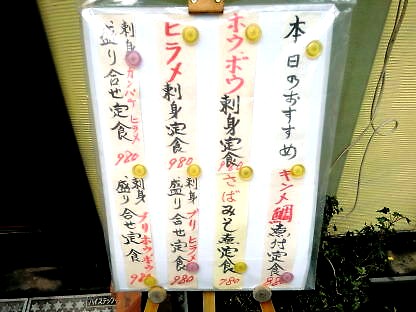 本日のおすすめ
キンメ鯛煮付定食
980
ホウボウ刺身定食
980
さばみそ煮定食
980
ヒラメ刺身定食
980
刺身ブリヒラメ
盛り合せ定食
980
刺身カンパチヒラメ
盛り合せ定食
980
刺身ブリホウボウ
盛り合せ定食
980